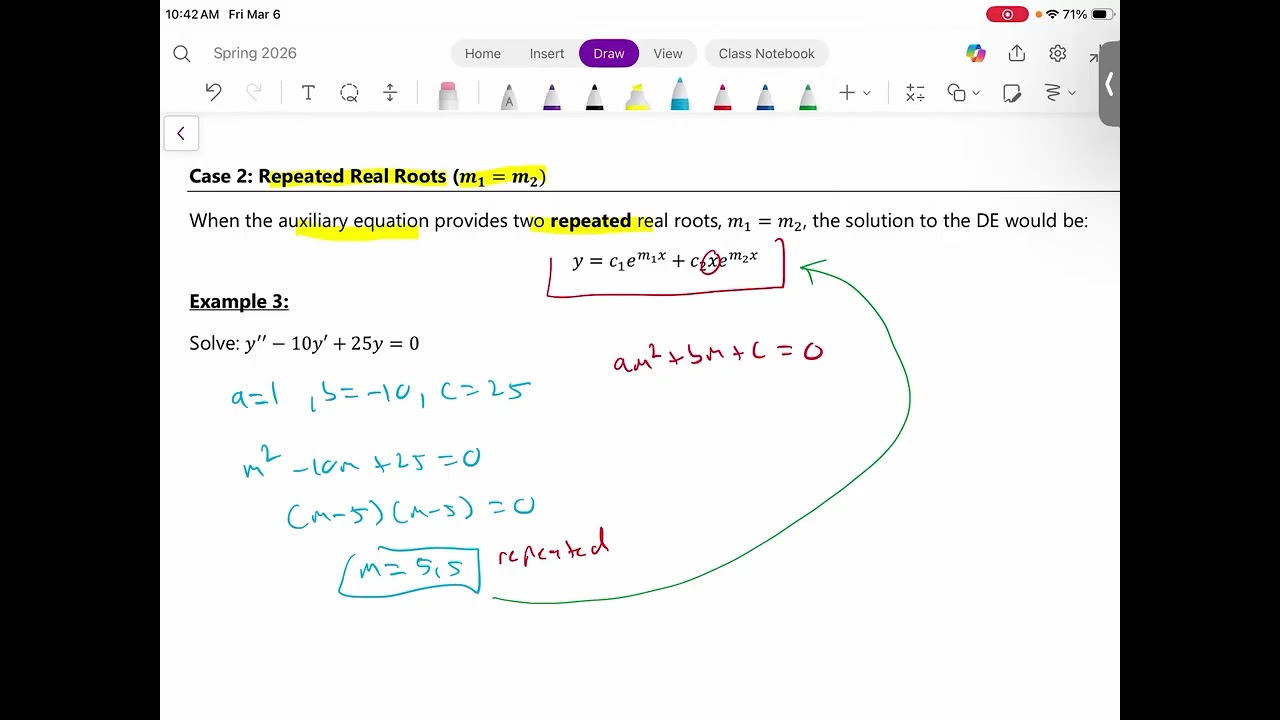 10:42 AM Fri Mar 6
71%
Spring 2026
Home Insert Draw View Class Notebook
Case 2: Repeated Real Roots (m₁ = m₂)
When the auxiliary equation provides two repeated real roots, m₁ = m₂, the solution to the DE would be:
y = c₁e^{m₁x} + c₂xe^{m₂x}
Example 3:
Solve: y′′ − 10y′ + 25y = 0
am² + bm + c = 0
a=1 , b=-10, c=25
m² -10m +25 =0
(m-5)(m-5) =0
m= 5,5 repeated